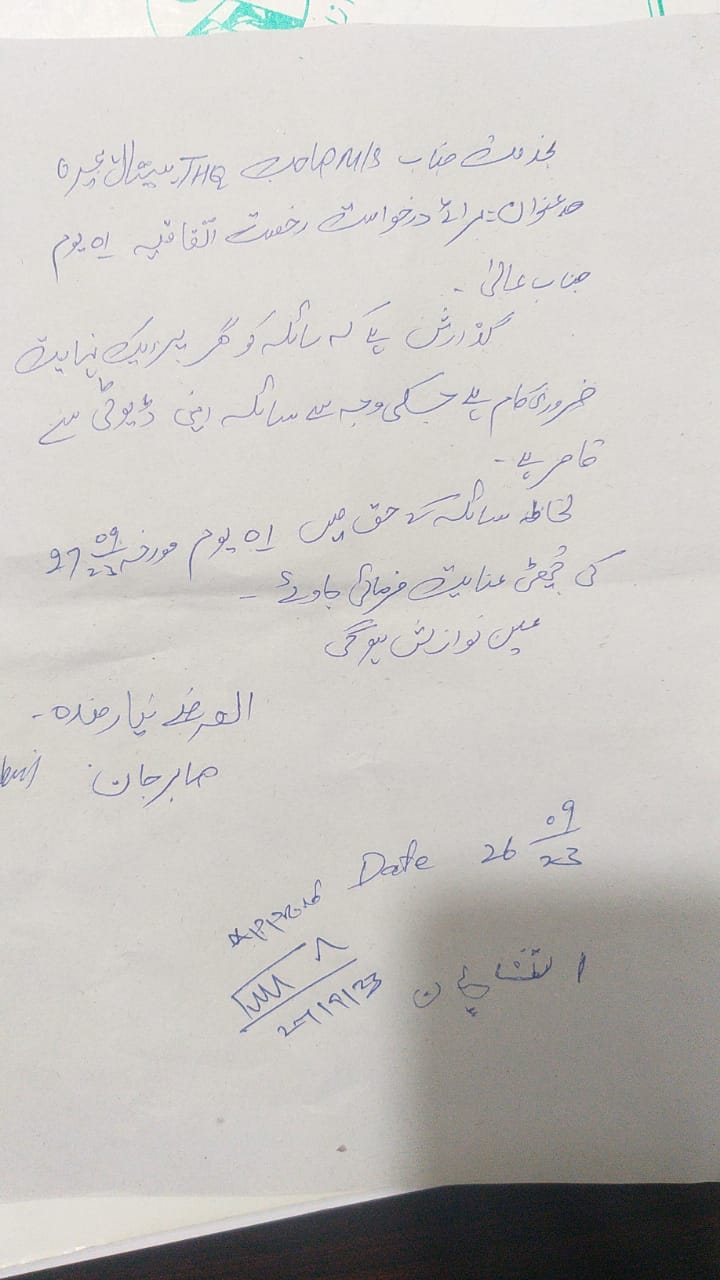 بخدمت جناب M/S صاحب THQ ہسپتال
عنوان: برائے درخواست رخصت اتفاقیہ 01 یوم
جناب عالیٰ۔
گذارش ہے کہ سائلہ کو گھر پر ایک نہایت
ضروری کام ہے جسکی وجہ سے سائلہ اپنی ڈیوٹی سے
قاصر ہے۔
لحاظہ سائلہ کے حق میں 01 یوم مورخہ 27 09/23
کی چُھٹی عنایت فرمائی جاوئے۔
عین نوازش ہوگی
العرضے نیازمندہ۔
صابرجان
Date 26 09/23
Approved
27/9/23